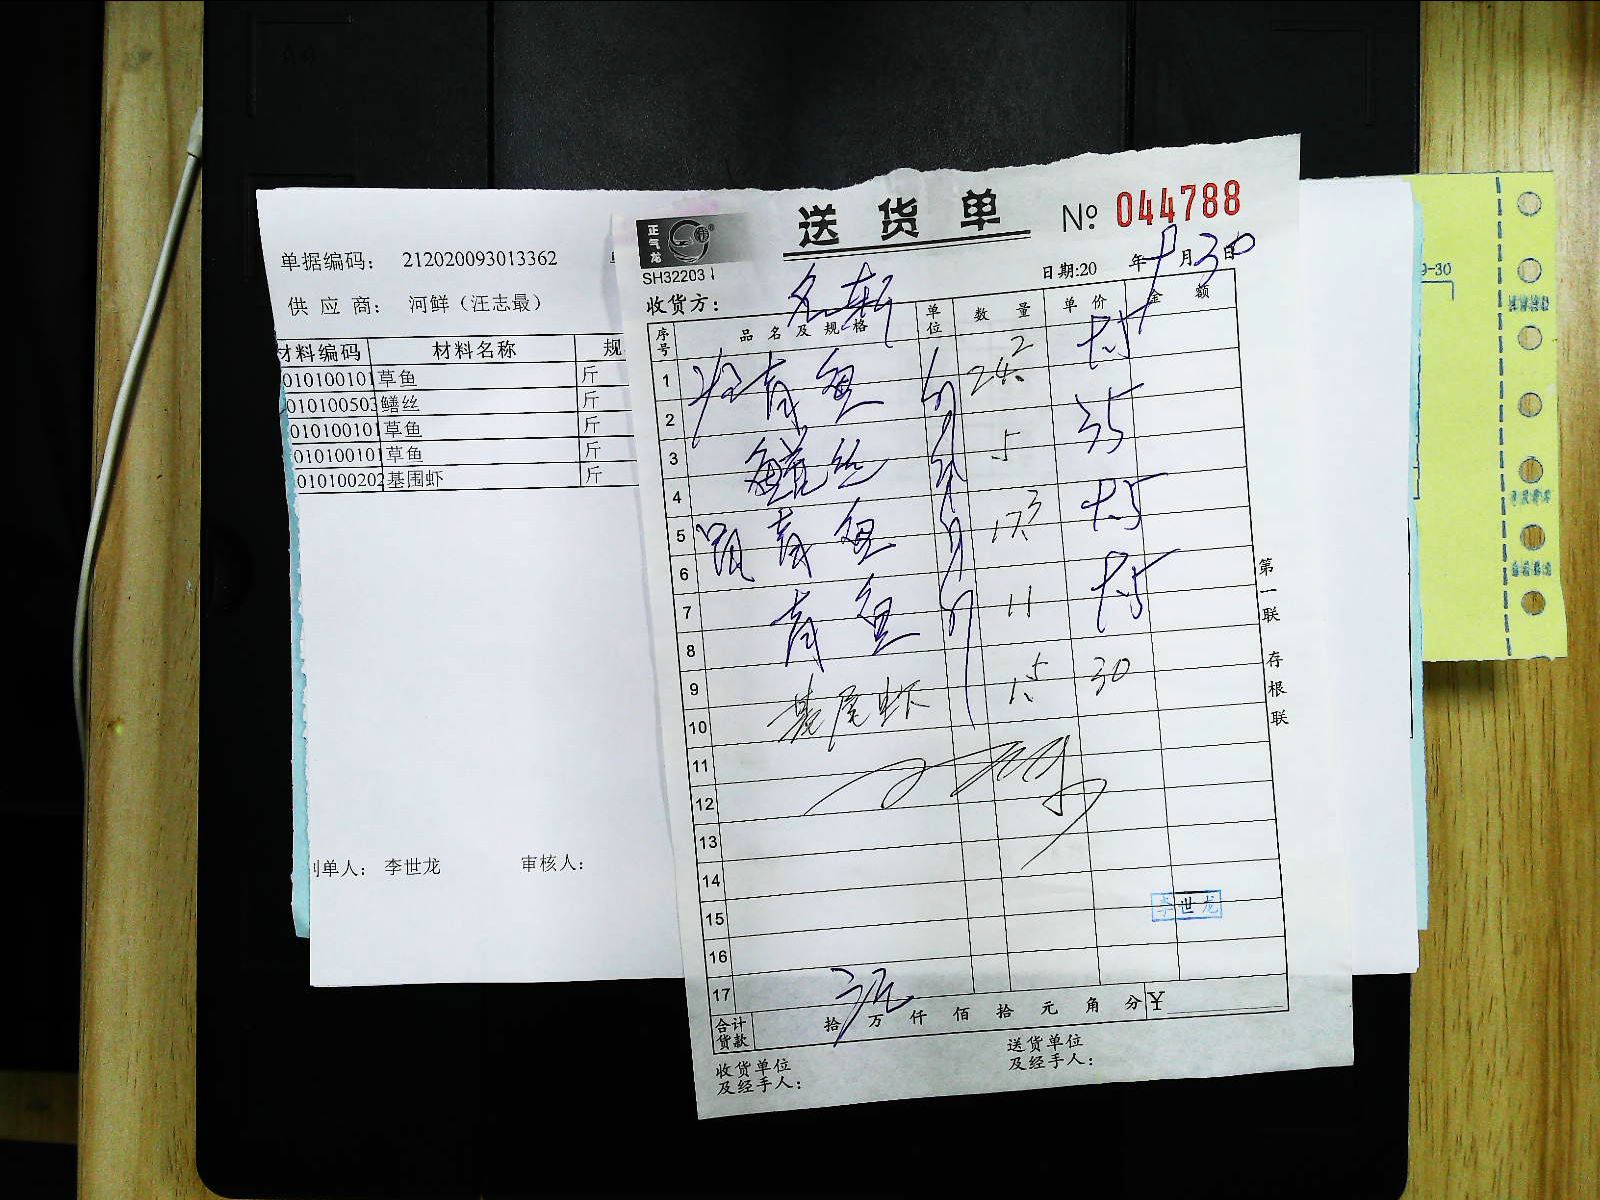 单据编码： 212020093013362
供 应 商： 河鲜（汪志最）
材料编码 材料名称 规
010100101 草鱼 斤
010100503 鳝丝 斤
010100101 草鱼 斤
010100101 草鱼 斤
010100202 基围虾 斤
制单人： 李世龙 审核人：
9-30
正气龙
送货单 № 044788
SH322031
日期:20 年 9 月 30 日
收货方：
序号 品名及规格 单位 数量 单价 金额
1
2
3
4
5
6
7
8
9
10
11
12
13
14
15
16
17
青鱼 24.2 7.5
鳝丝 5 35
青鱼 17.3 7.5
青鱼 11 7.5
基尾虾 1.5 30
李世龙
合计货款 拾 万 仟 佰 拾 元 角 分 ¥
收货单位及经手人：
送货单位及经手人：
第一联 存根联